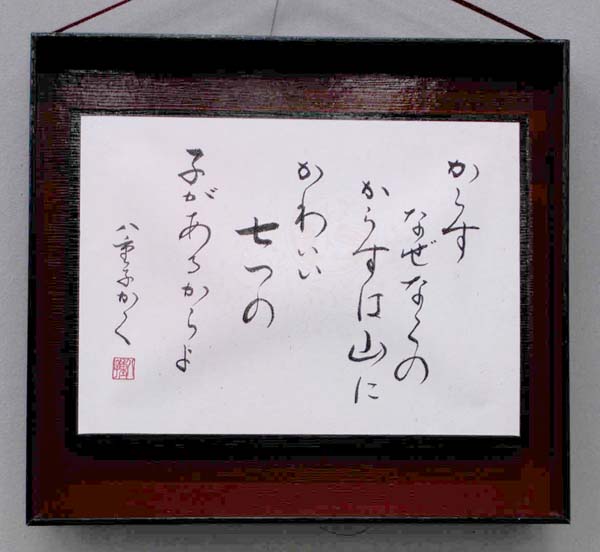 からす
なぜなくの
からすは山に
かわいい
七つの
子があるからよ
八重子かく